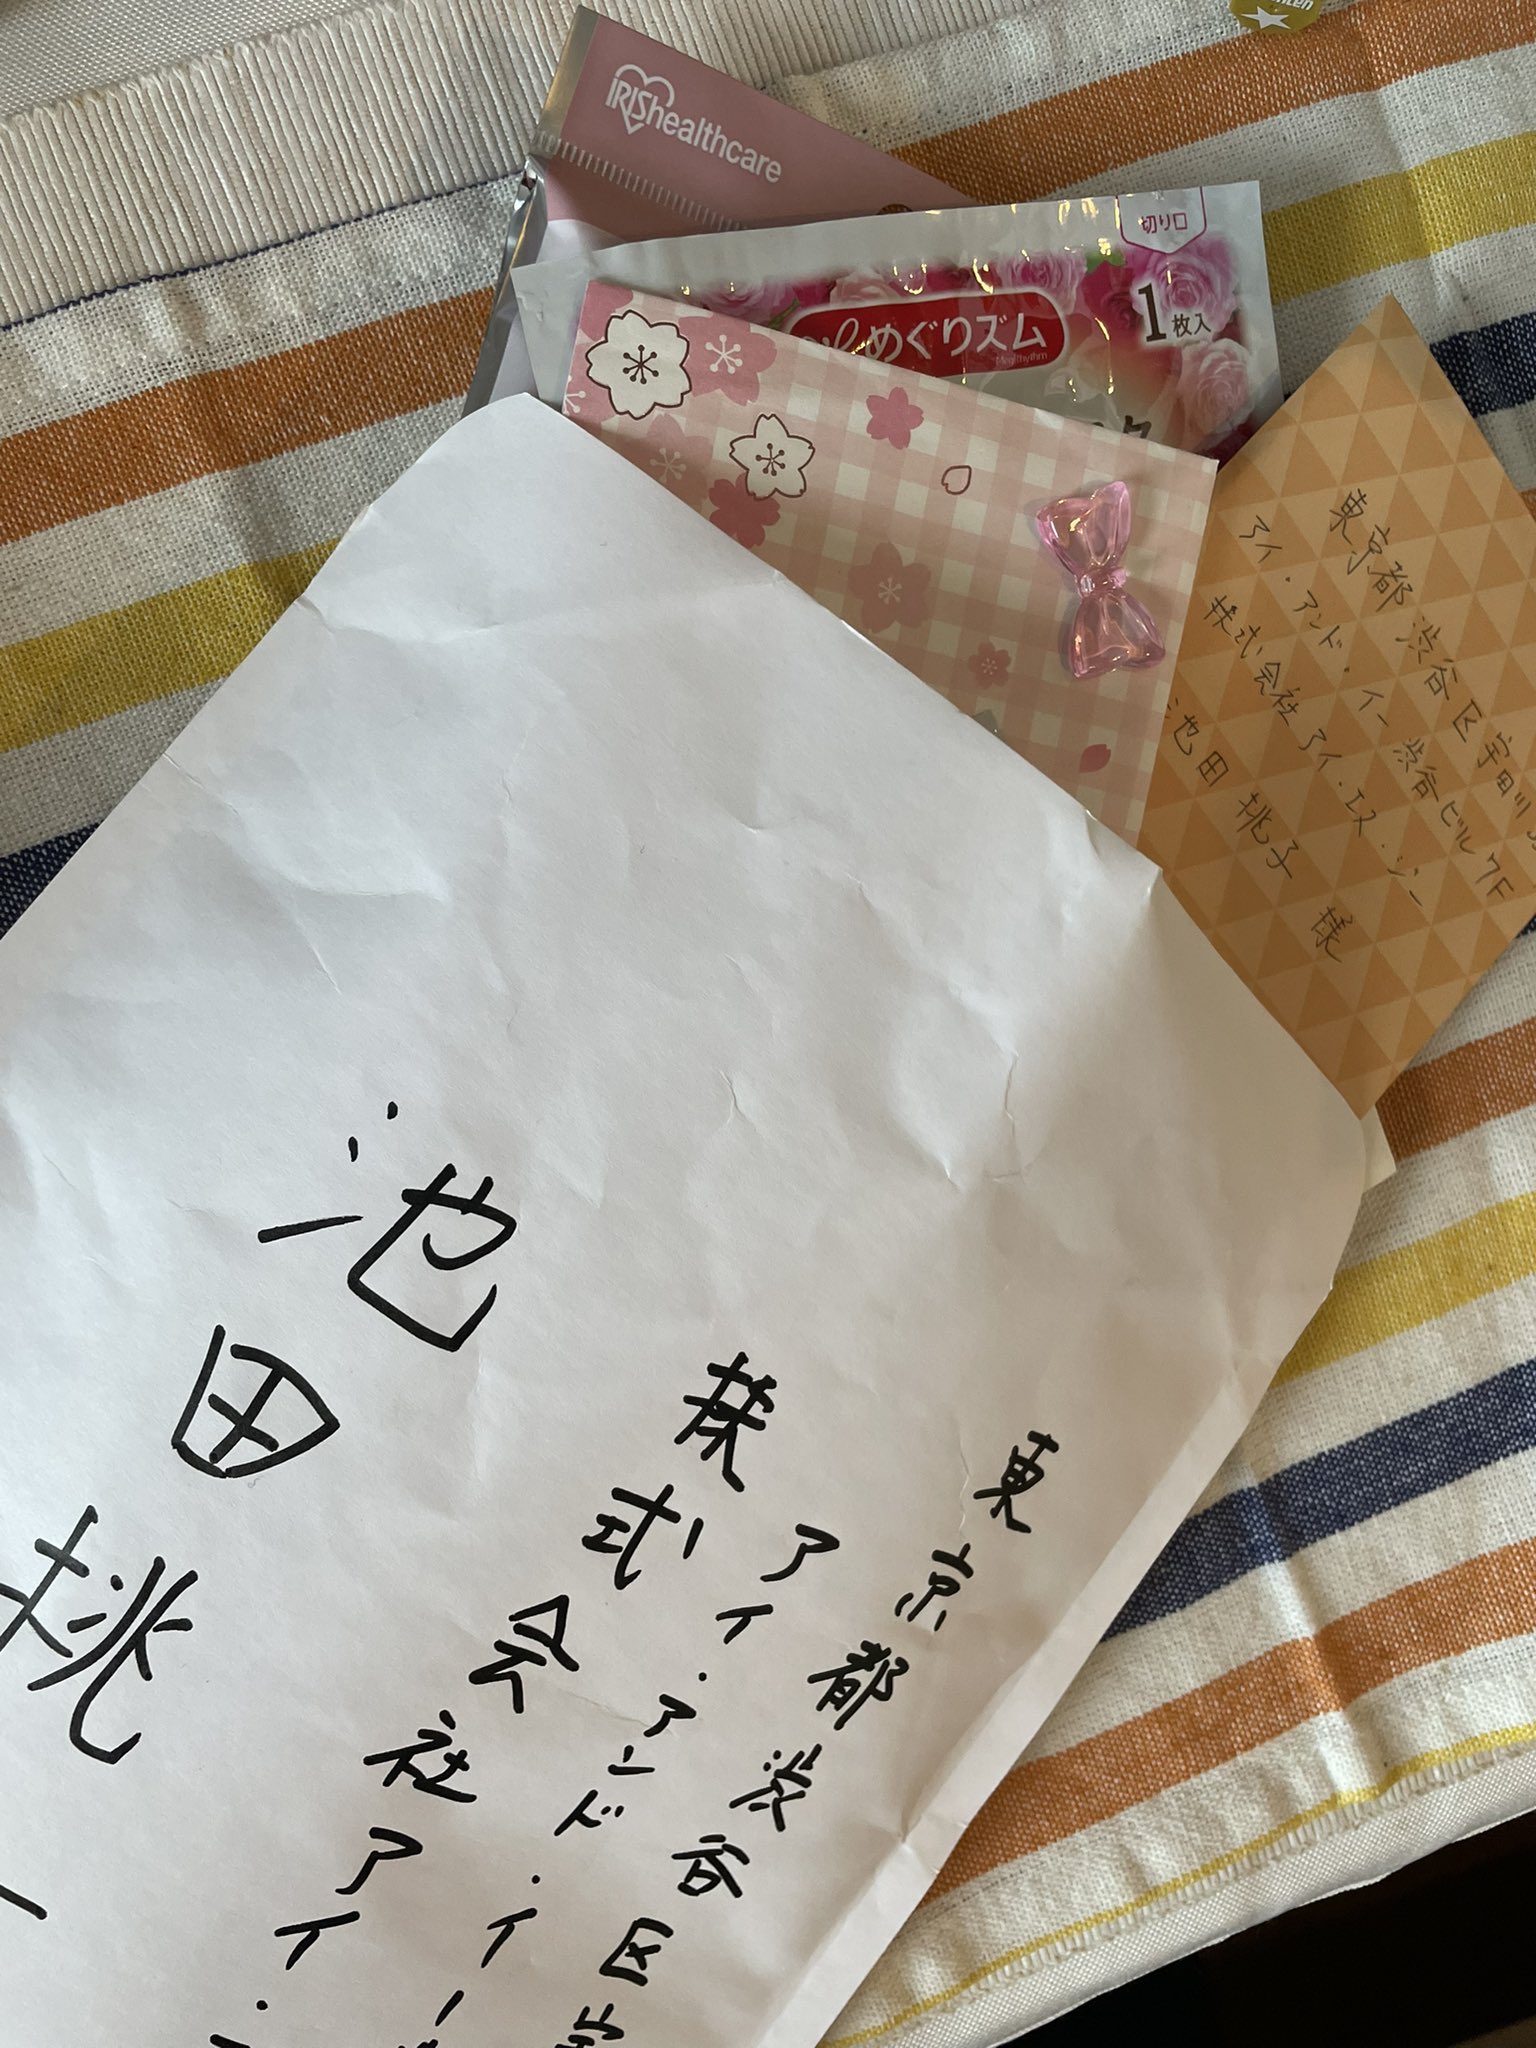 IRIShealthcare
切り口
めぐりズム
MegRhythm
1枚入
東京都渋谷区宇田川
アイ・アンド・イー渋谷ビル7F
株式会社アイ・エス・シー
池田桃子 様
東京都渋谷区宇
アイ・アンド・イー
株式会社アイ・
池田桃